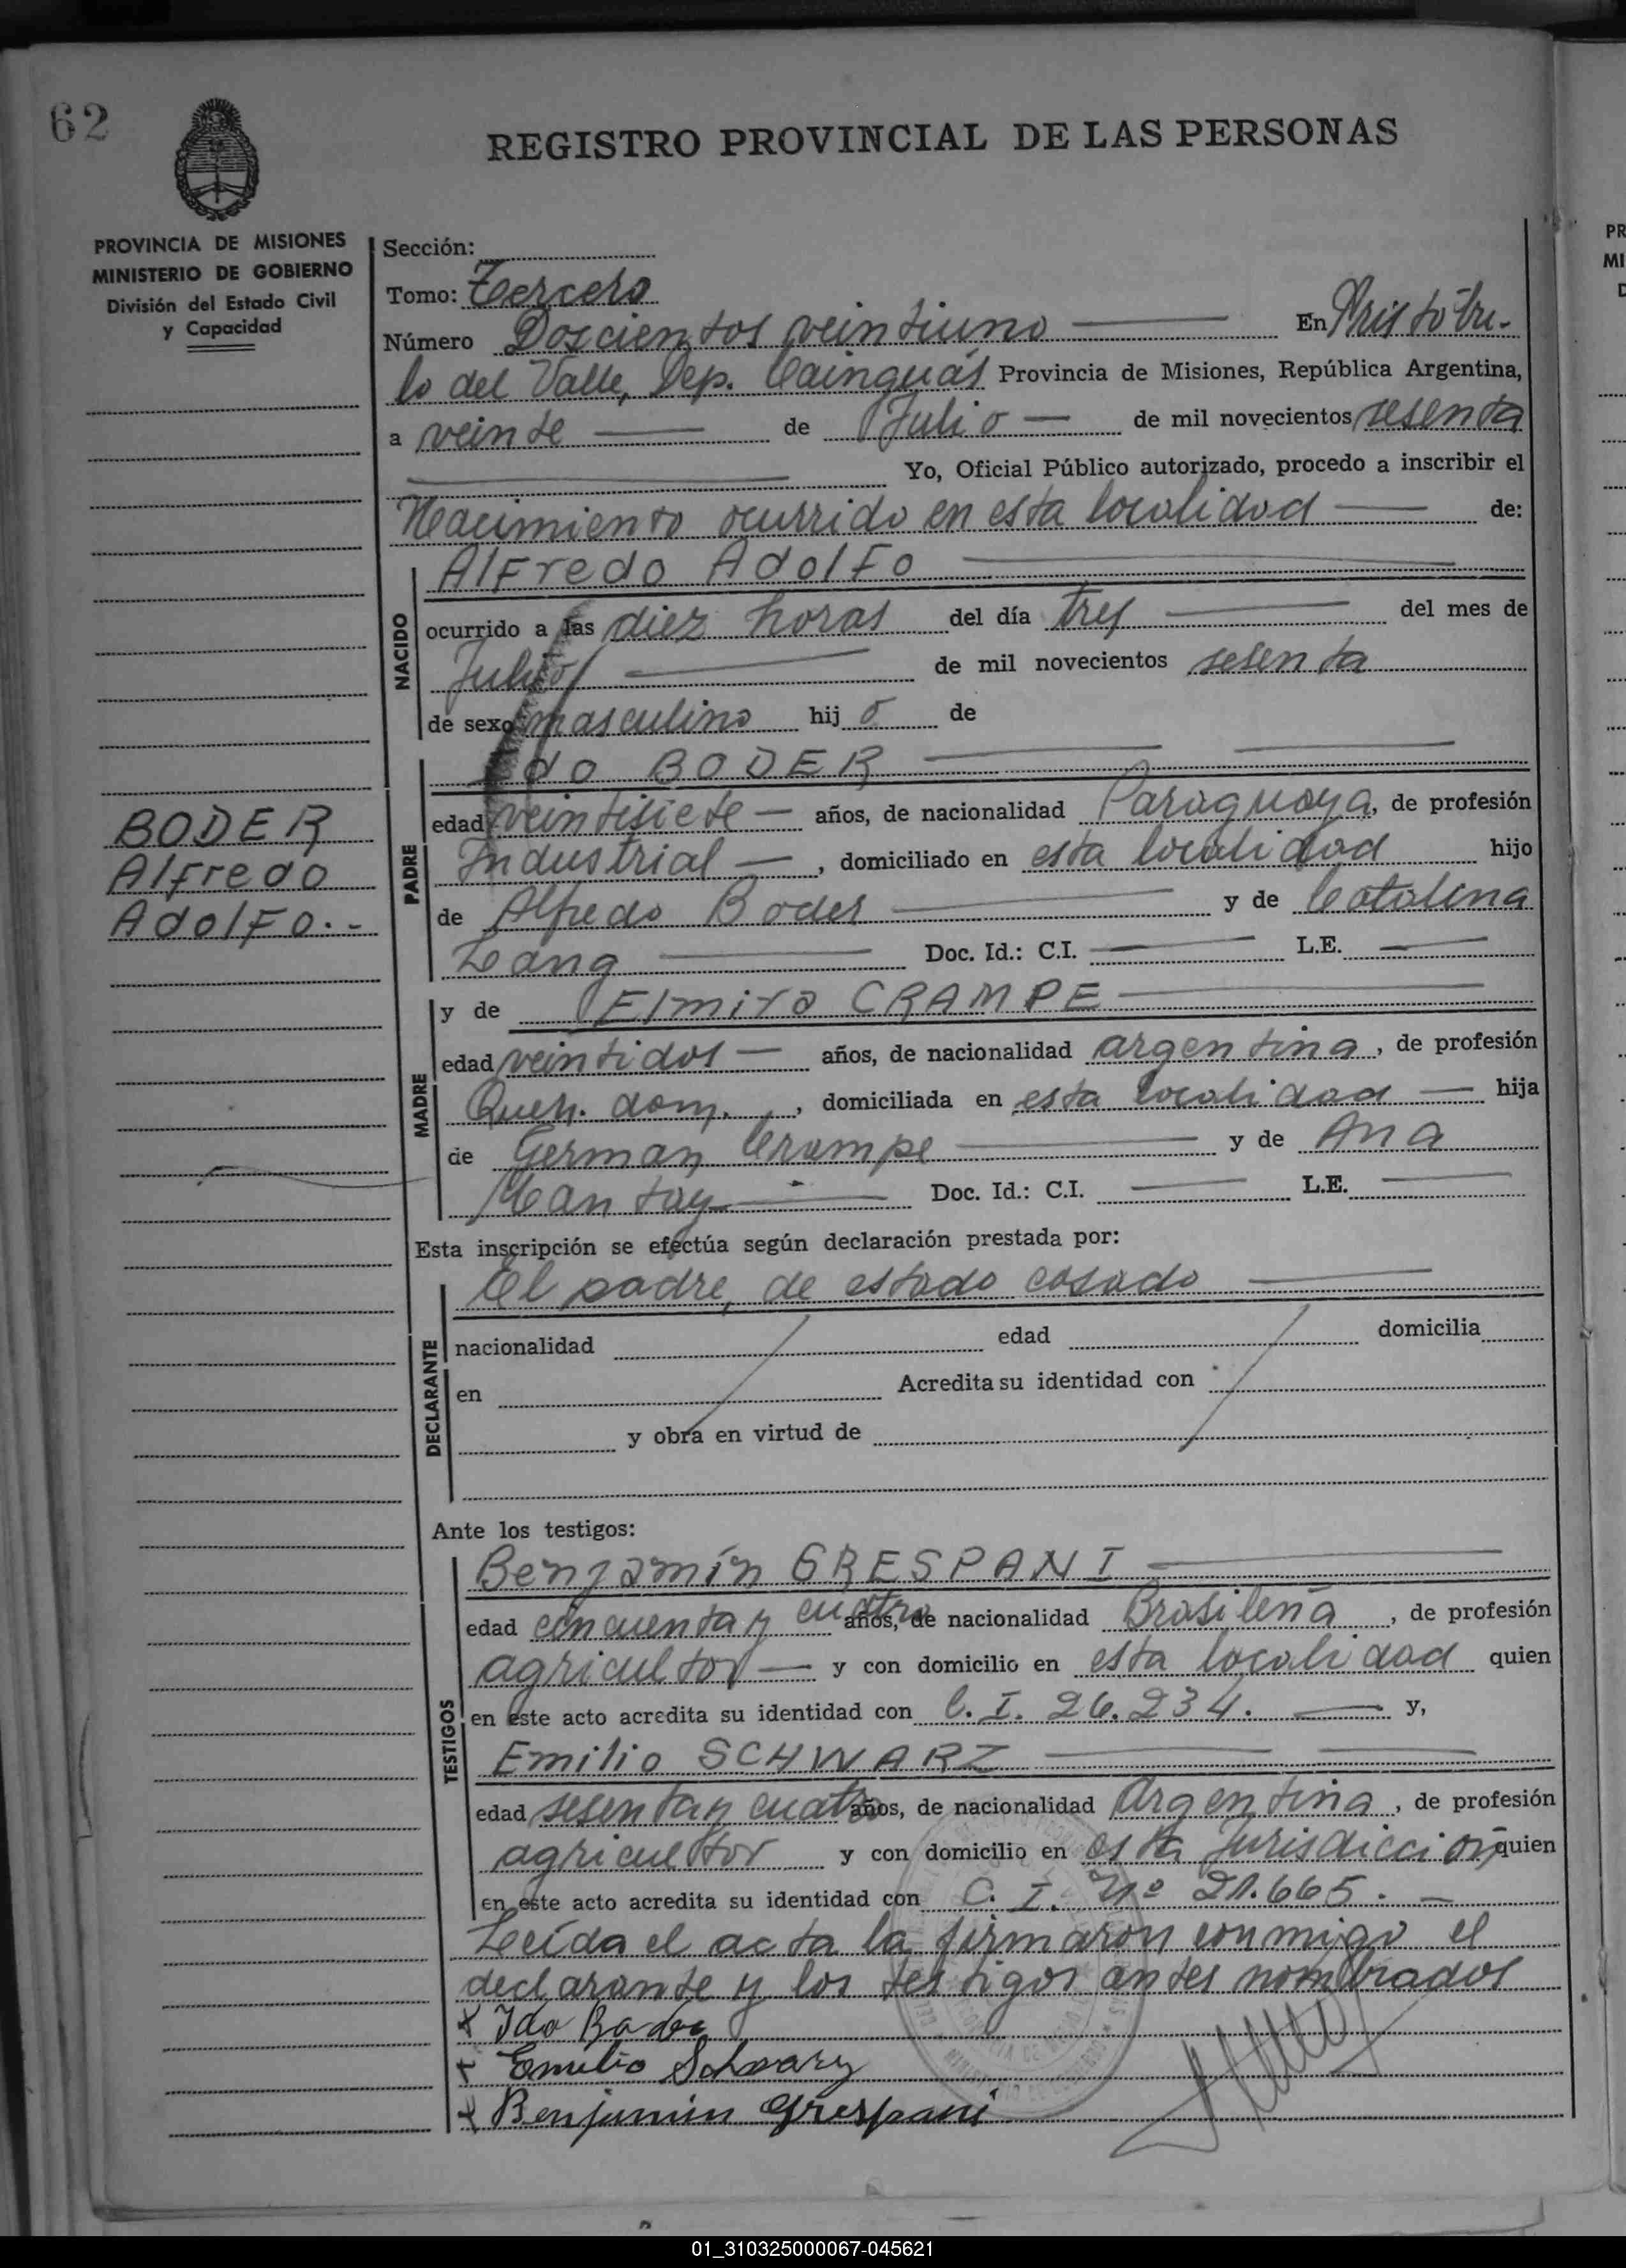 62
REGISTRO PROVINCIAL DE LAS PERSONAS
PROVINCIA DE MISIONES
MINISTERIO DE GOBIERNO
División del Estado Civil
y Capacidad
Sección:
Tomo: Tercero
Número Doscientos veintiuno En Aristóbu-
lo del Valle, Dep. Cainguás Provincia de Misiones, República Argentina,
a veinte de Julio de mil novecientos sesenta
Yo, Oficial Público autorizado, procedo a inscribir el
Nacimiento ocurrido en esta localidad de:
NACIDO
Alfredo Adolfo
ocurrido a las diez horas del día tres del mes de
Julio de mil novecientos sesenta
de sexo masculino hijo de
PADRE
Ido BODER
edad veintisiete años, de nacionalidad Paraguaya, de profesión
Industrial, domiciliado en esta localidad hijo
de Alfredo Boder y de Catalina
Lang Doc. Id.: C.I. L.E.
BODER
Alfredo
Adolfo.-
MADRE
y de Elmira CRAMPE
edad veintidos años, de nacionalidad argentina, de profesión
Queh. dom., domiciliada en esta localidad hija
de German Crampe y de Ana
Mantay Doc. Id.: C.I. L.E.
Esta inscripción se efectúa según declaración prestada por:
DECLARANTE
El padre, de estado casado
nacionalidad edad domicilia
en Acredita su identidad con
y obra en virtud de
Ante los testigos:
TESTIGOS
Benjamín GRESPANI
edad cincuenta y cuatro años, de nacionalidad Brasileña, de profesión
agricultor y con domicilio en esta localidad quien
en este acto acredita su identidad con C. I. 26.234. y,
Emilio SCHWARZ
edad sesenta y cuatro años, de nacionalidad Argentina, de profesión
agricultor y con domicilio en esta Jurisdicción quien
en este acto acredita su identidad con C. I. Nº 21.665.
Leída el acta la firmaron conmigo el
declarante y los testigos antes nombrados
x Ido Boder
x Emilio Schwarz
x Benjamin Grespani
PR
MI
D
01_310325000067-045621